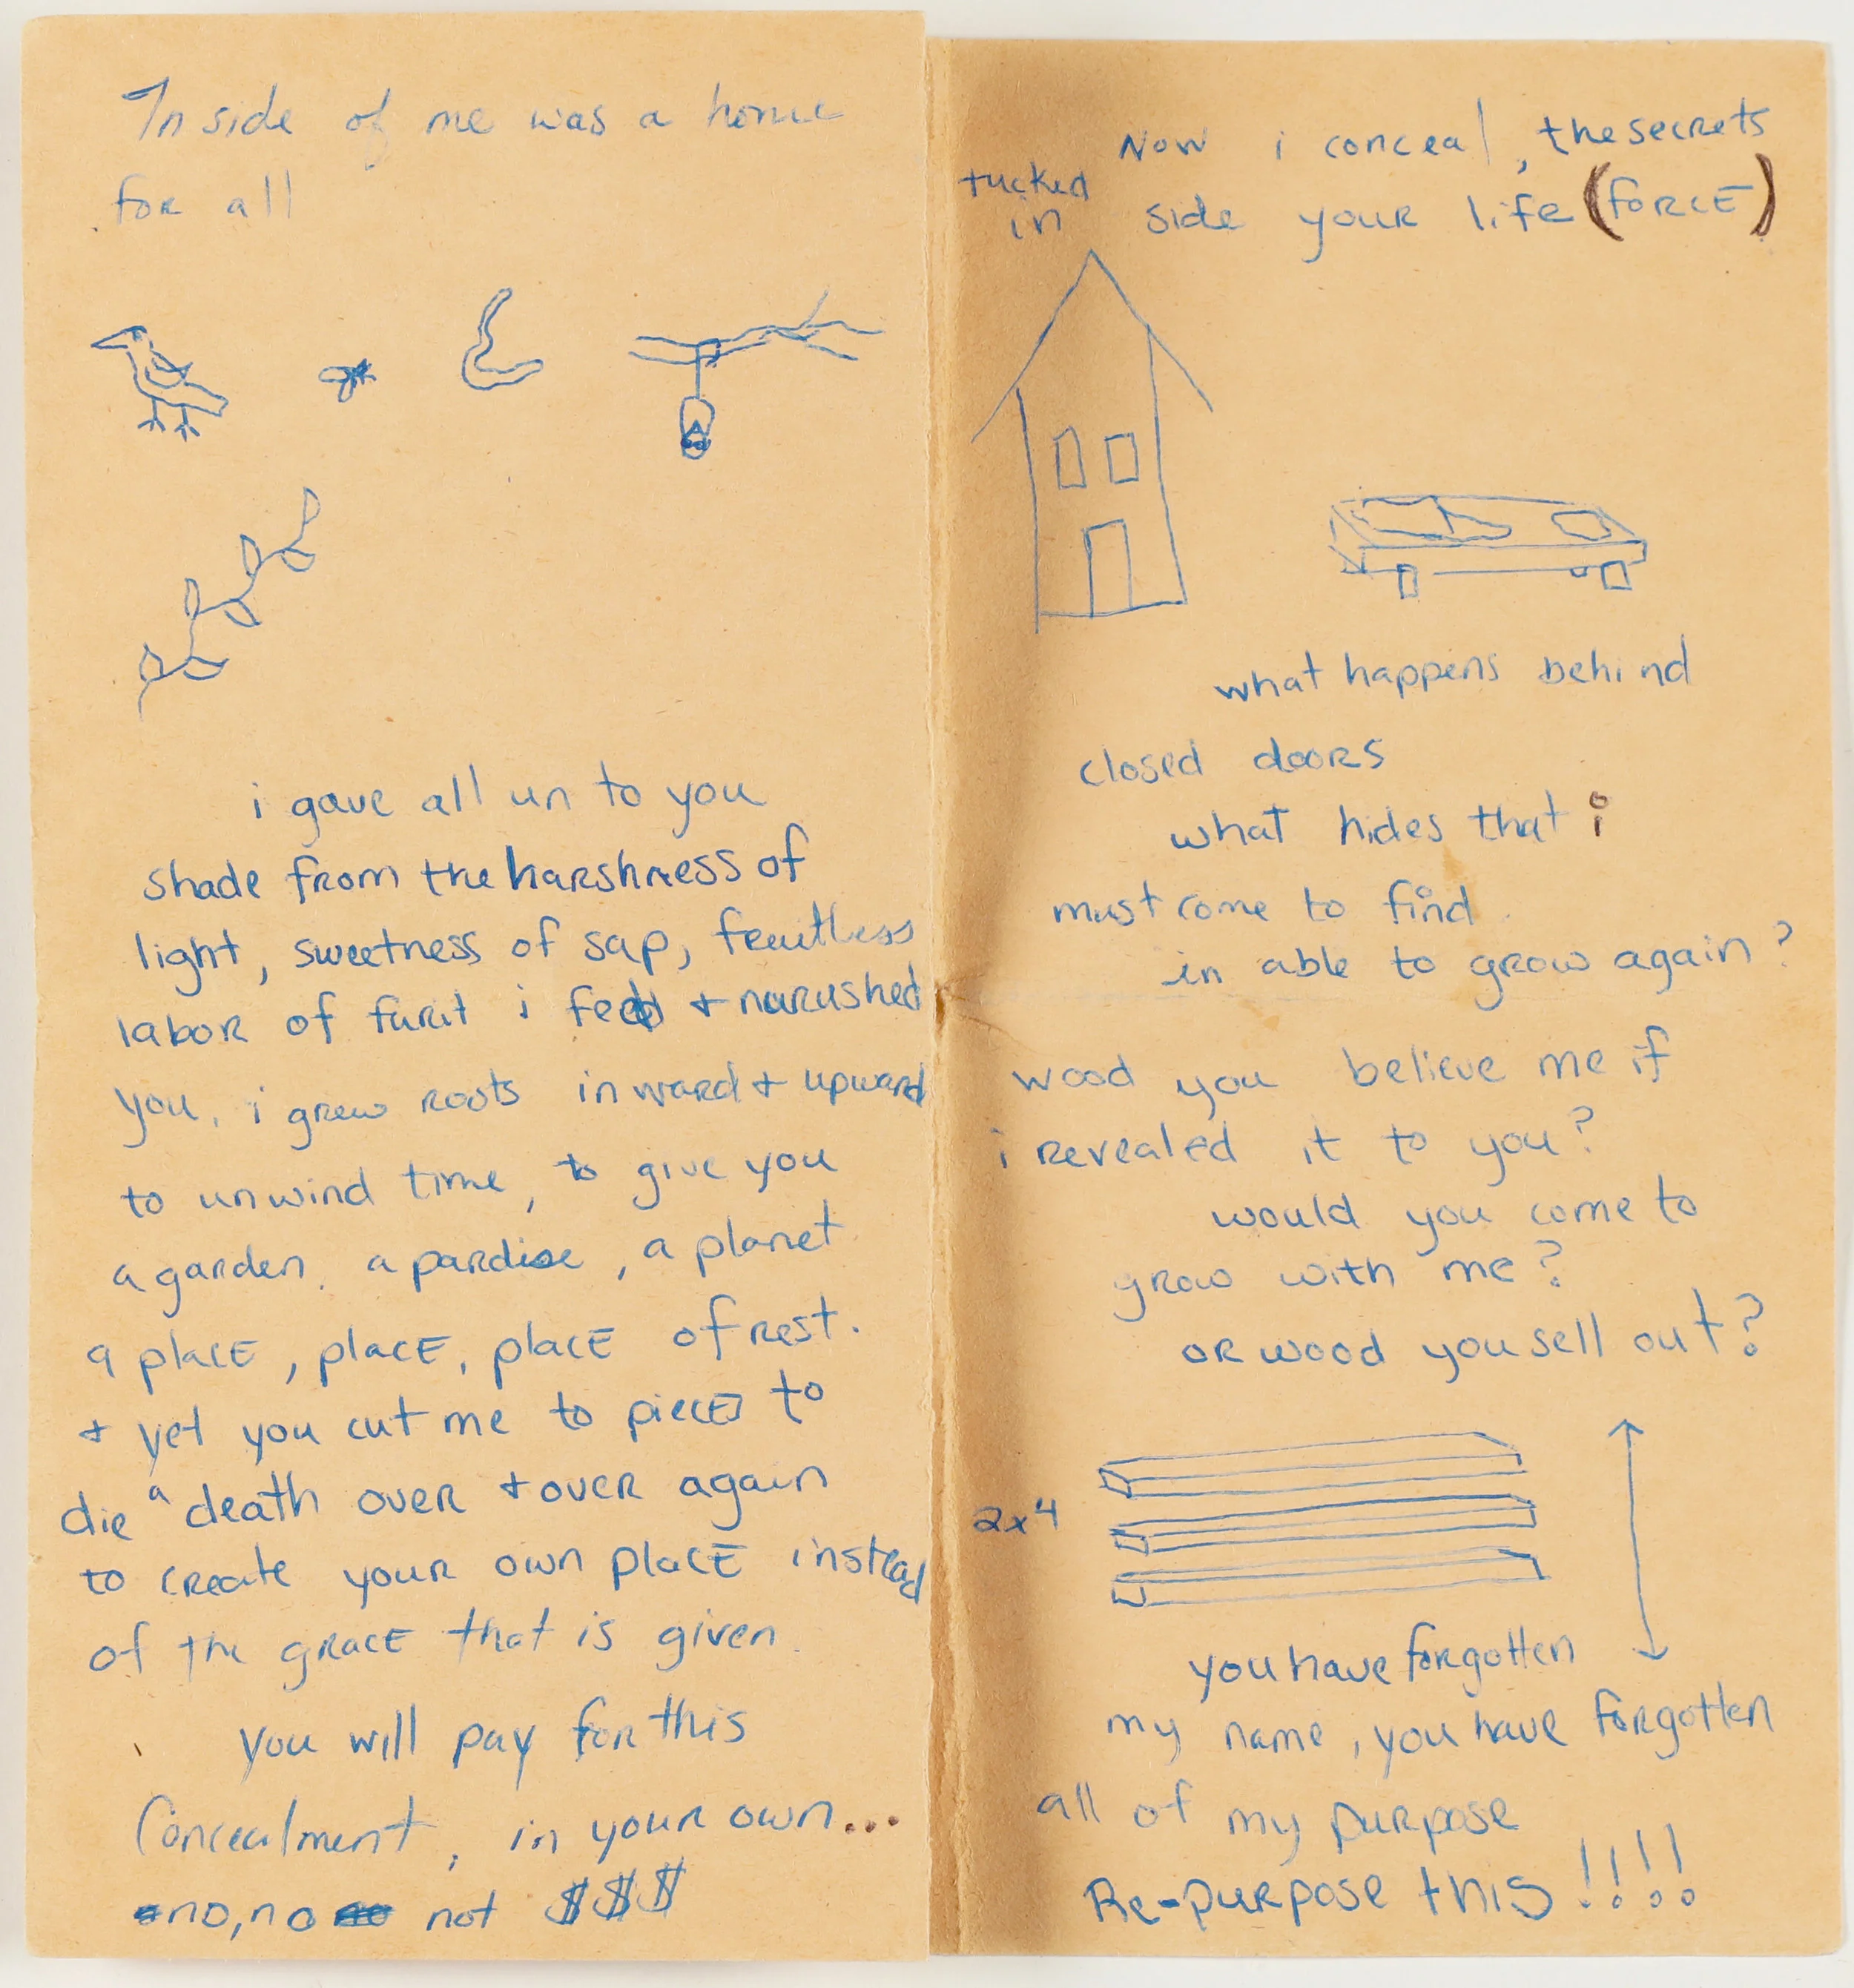 Inside of me was a home
for all
i gave all un to you
shade from the harshness of
light, sweetness of sap, fruitless
labor of furit i fed + narushed
you. i grew roots inward + upward
to unwind time, to give you
a garden, a pardise, a planet
a place, place, place of rest.
+ yet you cut me to pieces to
die a death over + over again
to create your own place instead
of the grace that is given.
you will pay for this
Concealment, in your own...
no, no not $$$
Now i conceal, the secrets
tucked
in side your life (force)
what happens behind
closed doors
what hides that i
must come to find
in able to grow again?
wood you believe me if
i revealed it to you?
would you come to
grow with me?
or wood you sell out?
2x4
you have forgotten
my name, you have forgotten
all of my purpose
Re-purpose this!!!!